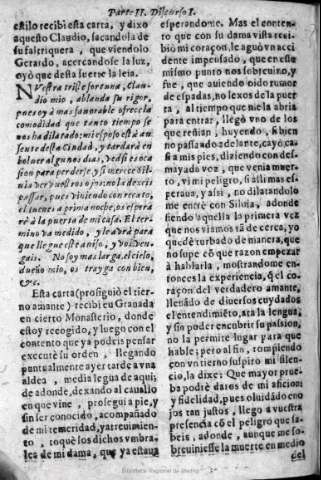 Parte II. Discurso I.
estilo recibi esta carta, y dixo
aquesto Claudio, sacandola de
su faltriquera, que viendolo
Gerardo, acercandose la luz,
oyò que desta suerte la leia.
NVestra triste fortuna, Clau-
dio mio, ablanda su rigor,
pues oy à mas saludable ofrece la
comodidad que tanto tiempo se
nos ha dilatado: mi esposo està au-
sente desta Ciudad, y tardarà en
bolver algunos dias,
passar, pues viniendo con recato,
el Lunes a prima noche, os esperarè
a la puerta de mi casa. El ter-
mino va medido, y le avrà para
que llegue este aviso, y vos ven-
gais. No soy mas larga, el cielo,
dueño mio, os trayga con bien,
&c.
Esta carta (prosiguiò el tier-
no amante) recibi en Granada
en cierto Monasterio, donde
estoy recogido, y luego con el
contento que ya podeis pensar
executè su orden, llegando
puntualmente ayer tarde a vna
aldea, media legua de aqui;
de adonde, dexando al cauallo
en que vine, prosegui a pie, y
sin ser conocido, acompañado
de mi temeridad, y atreuimien-
to, toquè los dichos vmbra-
les de mi dama, que ya estaua
esperandome. Mas el conten-
to que con su dama vista reci-
biò mi coraçon, le aguò vn acci-
dente impensado, que en este
mismo punto nos sobreuino, y
fue, que auiendo oido rumor
de espadas, no lexos de la puer-
ta, al tiempo que me la abria
para entrar, llegò vno de los
que reñian, huyendo, si bien
no passando adelante, cayò casi
a mis pies, diziendo con des-
mayada voz, que venia muer-
to, vi mi peligro, si assi mas es-
peraua, y assi, no dilatandolo
me entre con Siluia, adonde
siendo aquella la primera vez
que nos viamos tã de cerca, yo
quedè turbado de manera, que
no supe cõ que razon empezar
à hablarla, mostrandome en-
tonces la experiencia, q̃ el co-
raçon del verdadero amante,
llenãdo de diuersos cuydados
el entendimiẽto, ata la lengua,
y sin poder encubrir su passion,
no la permite lugar para que
hable; pero al fin, rompiendo
con vn tierno suspiro mi silen-
cio, la dixe: Que mayor prue-
ba podrè daros de mi aficion
y fidelidad, pues oluidãdo eno-
jos tan justos, llego a vuestra
presencia cõ el peligro que sa-
beis, adonde, aunque me so-
breuiniesse la muerte en medio
del
Biblioteca Regional de Madrid